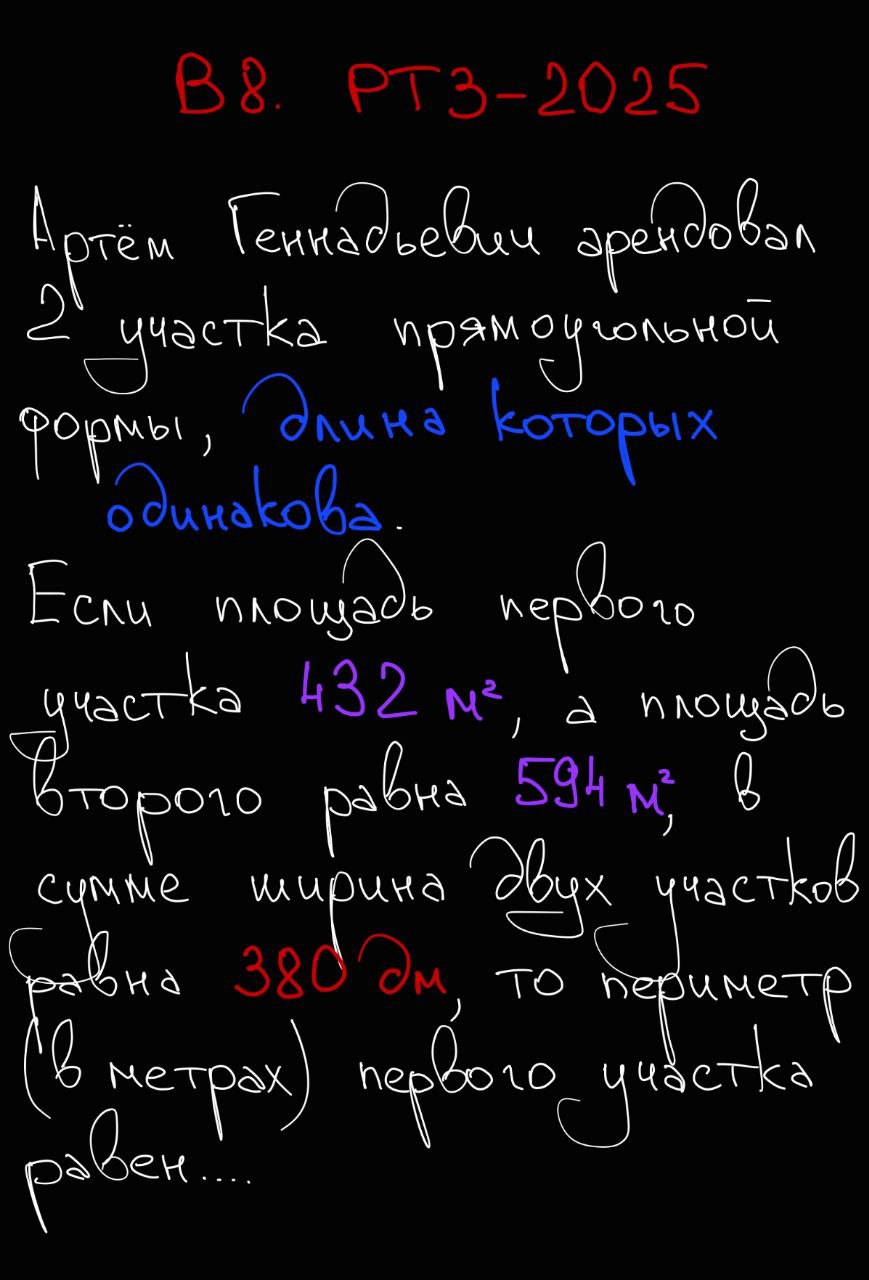 В8. РТ3-2025
Артём Геннадьевич арендовал
2 участка прямоугольной
формы, длина которых
одинакова.
Если площадь первого
участка 432 м², а площадь
второго равна 594 м², в
сумме ширина двух участков
равна 380 дм, то периметр
(в метрах) первого участка
равен....